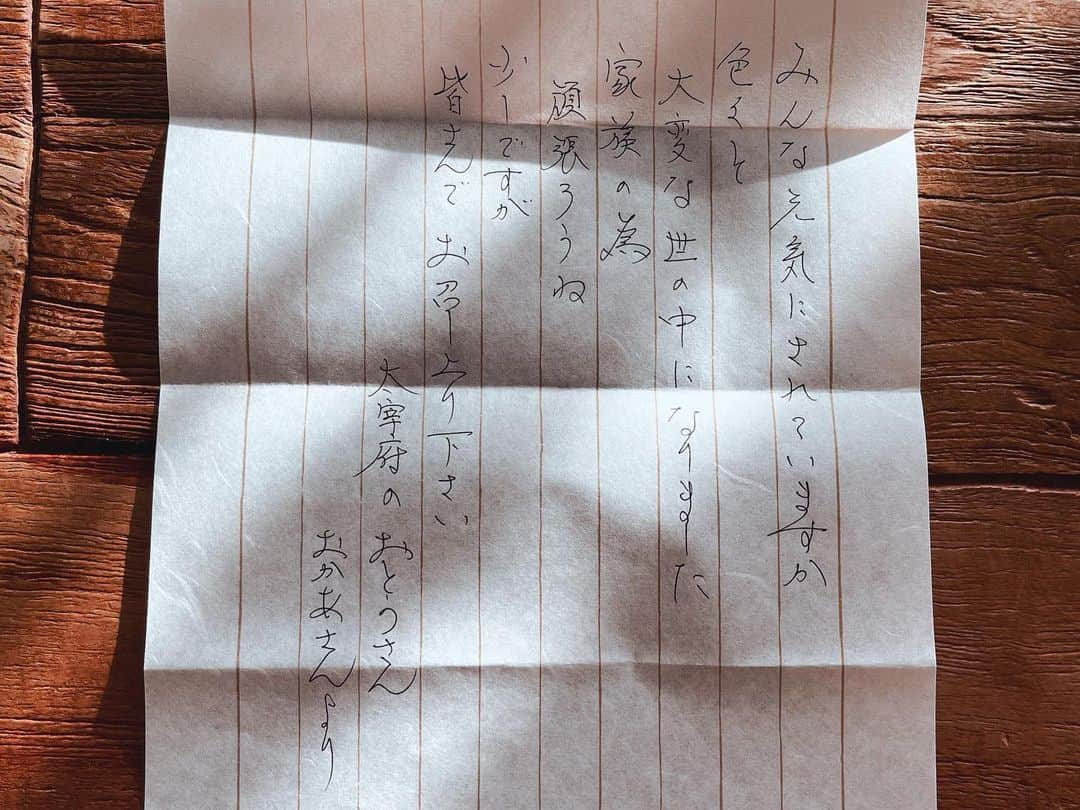 みんな元気にされていますか
色々と
大変な世の中になりました
家族の為
頑張ろうね
少しですが
皆さんで お召し上り下さい
太宰府の おとうさん
おかあさんより